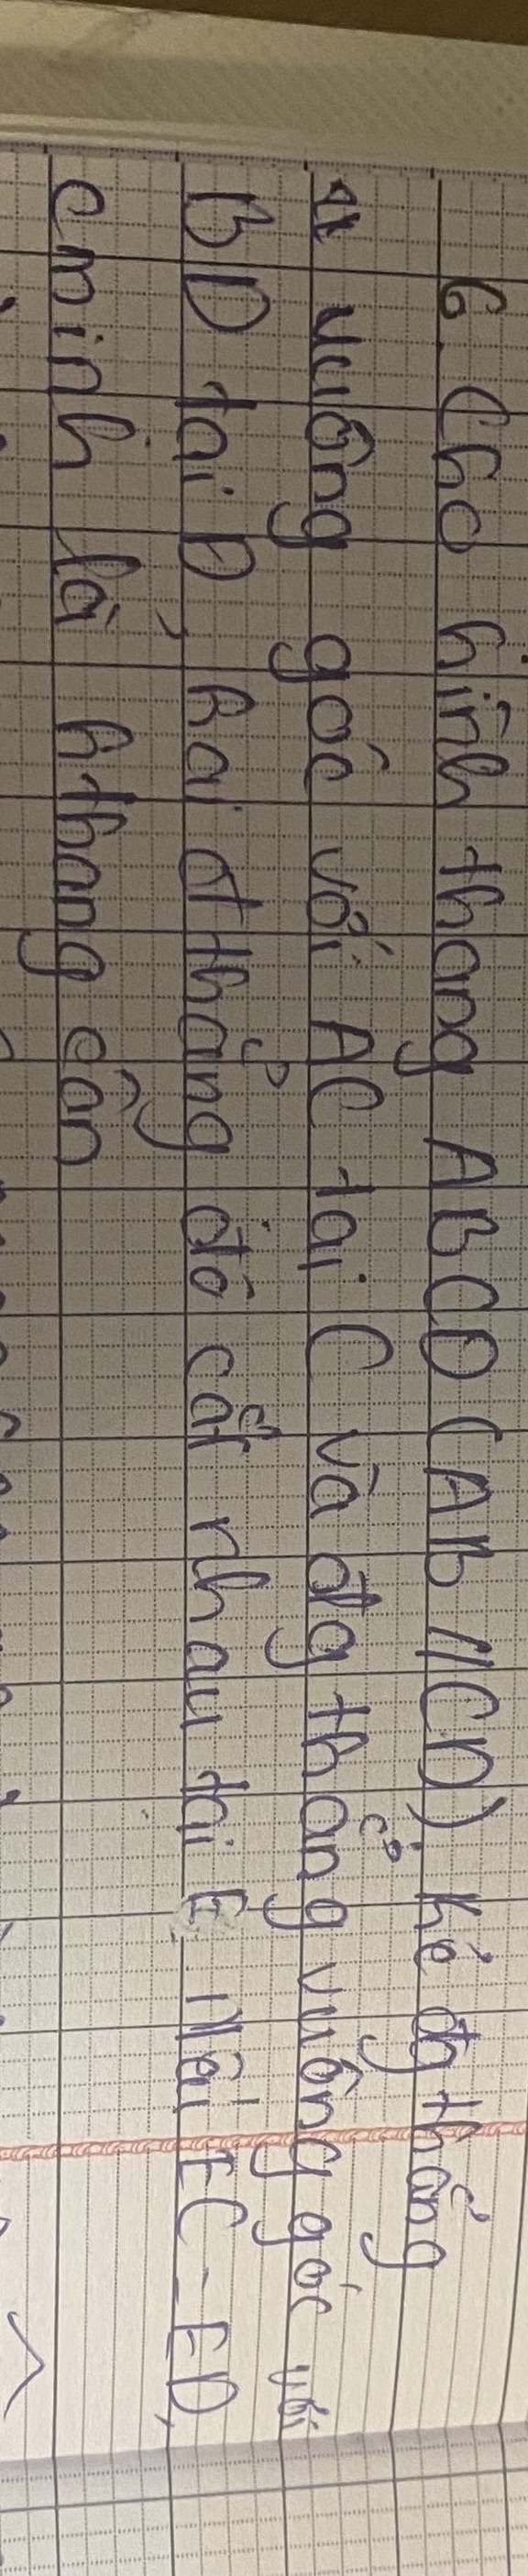 6. Cho hình thang ABCD (AB // CD). kẻ đg thẳng
vuông góc với AC tại C và đg thẳng vuông góc với
BD tại D, hai đthẳng đó cắt nhau tại E. Nếu EC = ED,
cminh là hthang cân